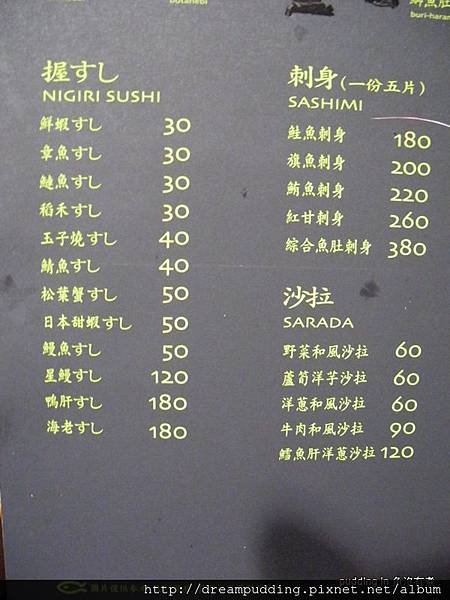 botanebi
buri-haran
握すし
NIGIRI SUSHI
鮮蝦すし 30
章魚すし 30
鰱魚すし 30
稻禾すし 30
玉子燒すし 40
鯖魚すし 40
松葉蟹すし 50
日本甜蝦すし 50
鰻魚すし 50
星鰻すし 120
鴨肝すし 180
海老すし 180
刺身(一份五片)
SASHIMI
鮭魚刺身 180
旗魚刺身 200
鮪魚刺身 220
紅甘刺身 260
綜合魚肚刺身 380
沙拉
SARADA
野菜和風沙拉 60
蘆筍洋芋沙拉 60
洋蔥和風沙拉 60
牛肉和風沙拉 90
鱈魚肝洋蔥沙拉 120
圖片僅供參
pudding in
http://dreampudding.pixnet.net/album